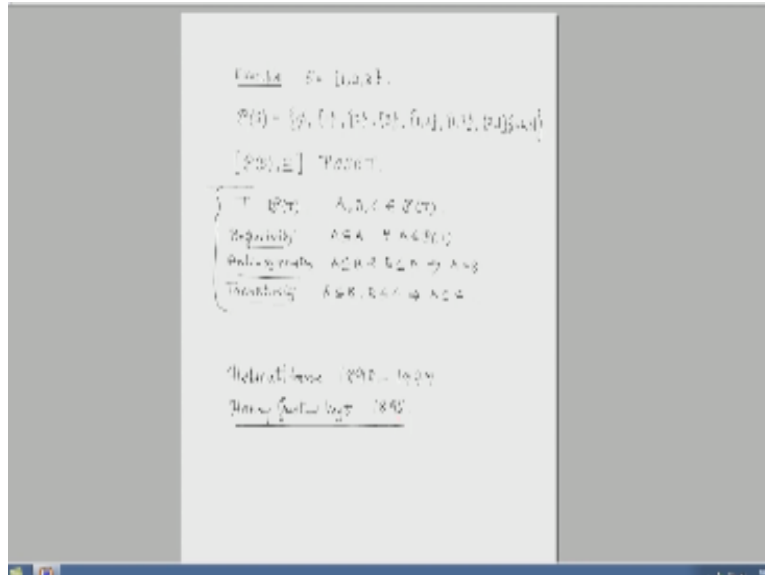 Example S = {1,2,3}.
P(S) = {φ, {1}, {2}, {3}, {1,2}, {1,3}, {2,3}, {1,2,3}}
[P(S), ⊆] POSET.
T P(T). A, B, C ∈ P(T).
Reflexivity A ⊆ A ∀ A ∈ P(T)
Anti-symmetric A ⊆ B & B ⊆ A ⇒ A = B
Transitivity A ⊆ B, B ⊆ C ⇒ A ⊆ C
Helmut Hasse 1898 - 1979
Henry Gustav Vogt 1895